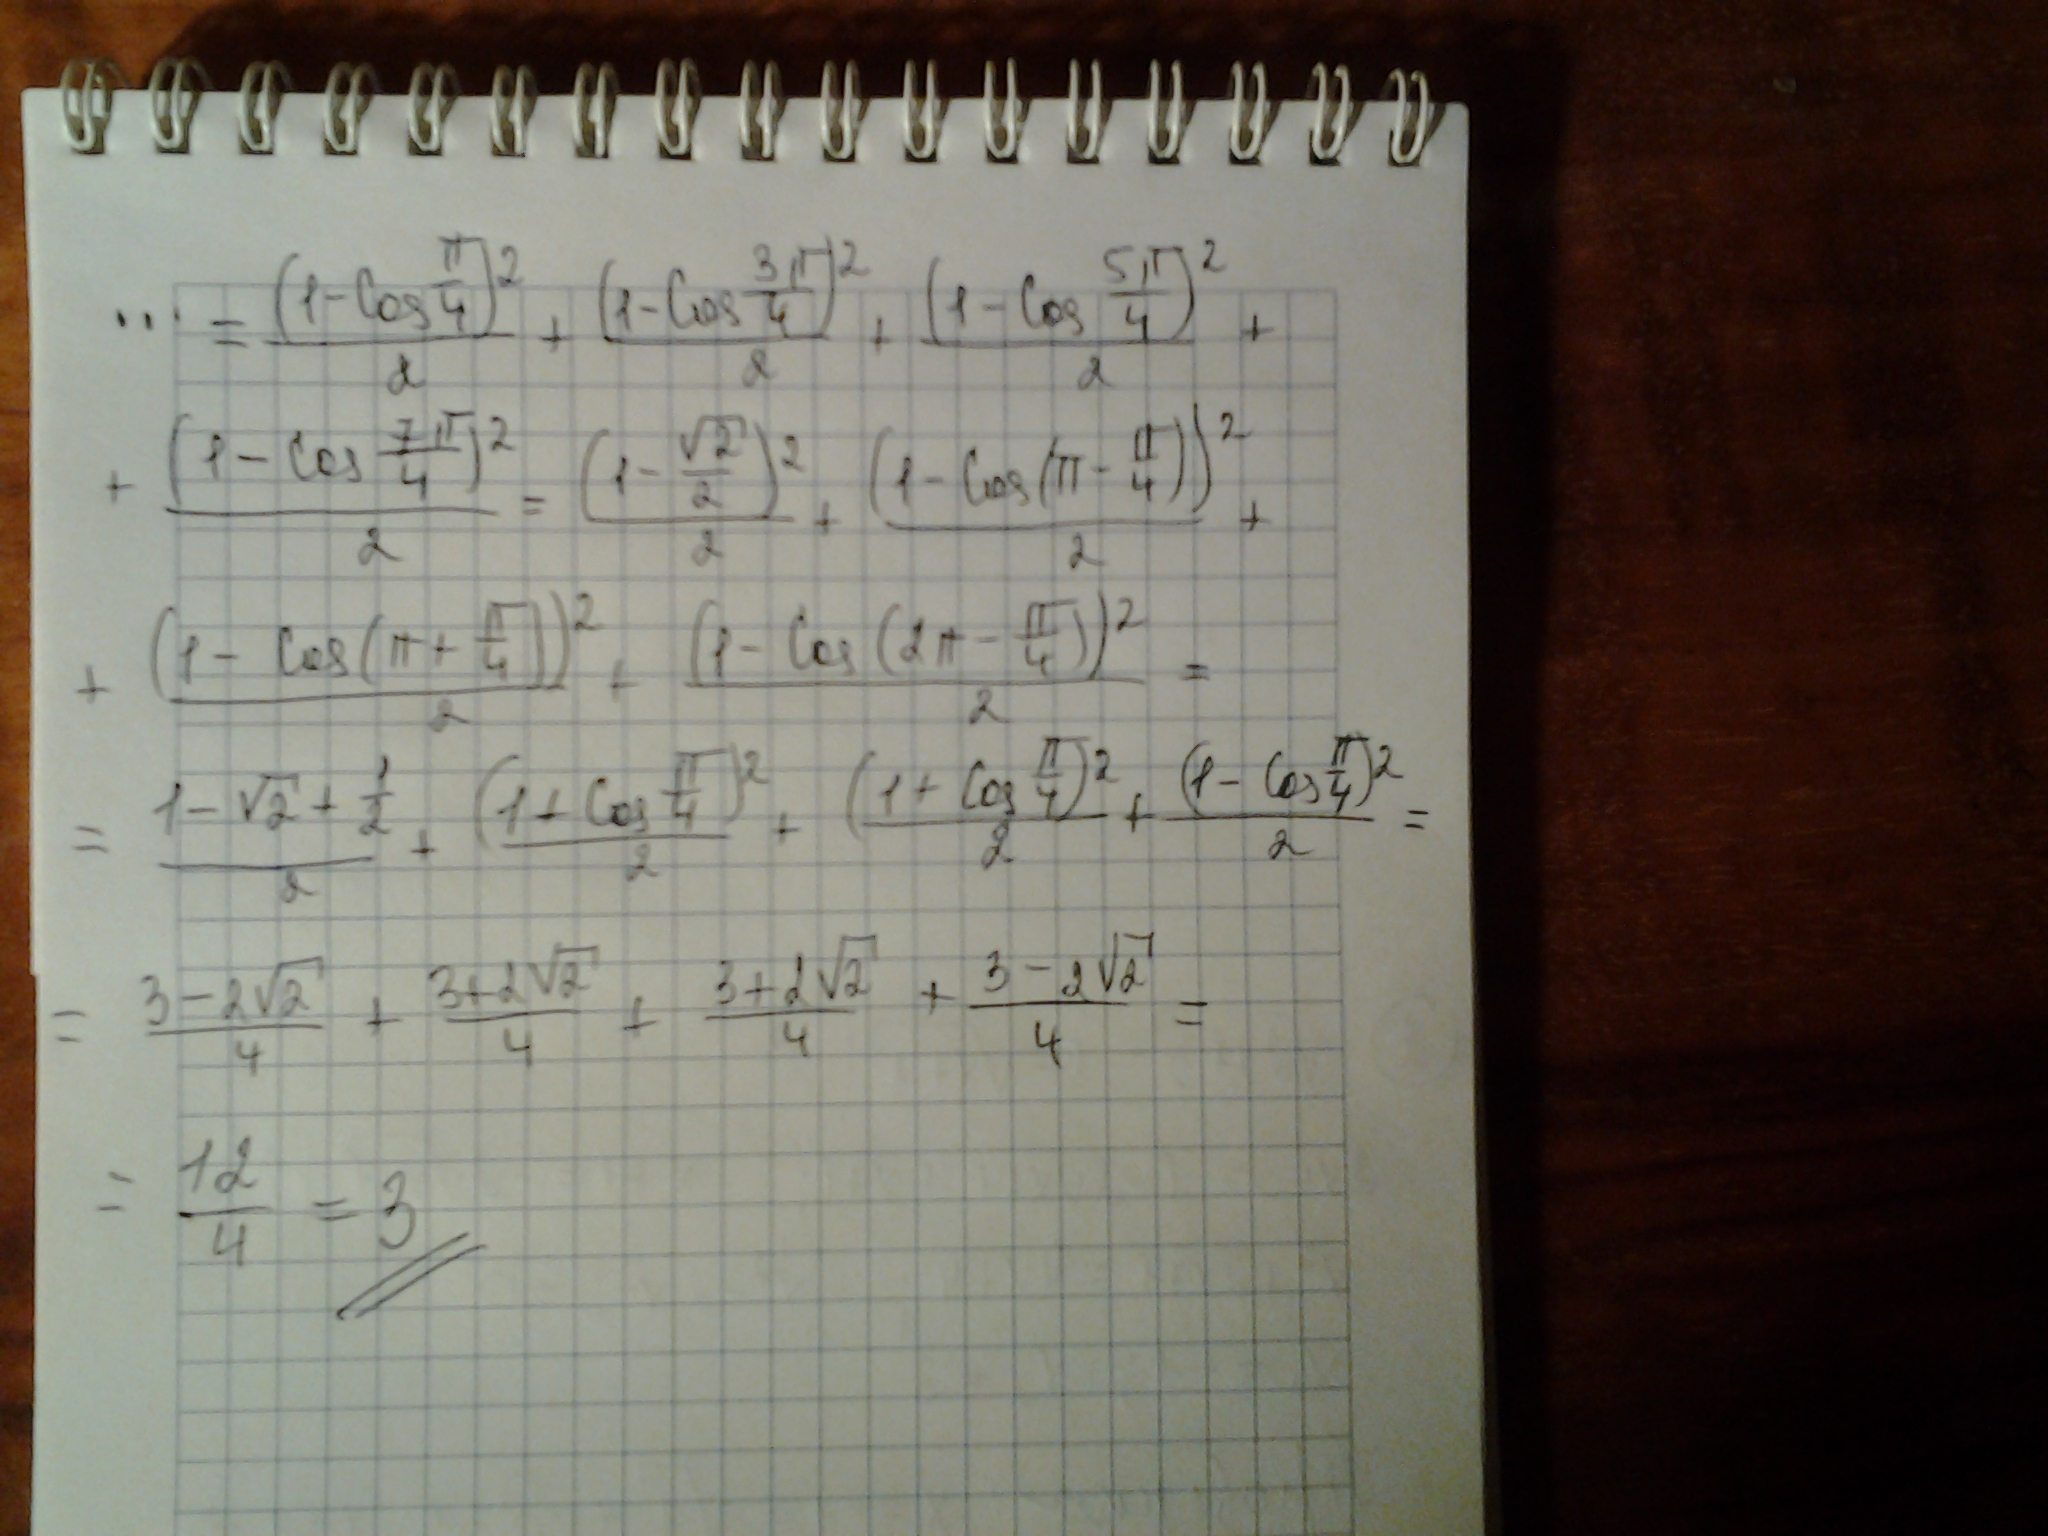 ... = (1 - Cos π/4)²/2 + (1 - Cos 3π/4)²/2 + (1 - Cos 5π/4)²/2 +
+ (1 - Cos 7π/4)²/2 = (1 - √2/2)²/2 + (1 - Cos(π - π/4))²/2 +
+ (1 - Cos(π + π/4))²/2 + (1 - Cos(2π - π/4))²/2 =
= (1 - √2 + 1/2)/2 + (1 + Cos π/4)²/2 + (1 + Cos π/4)²/2 + (1 - Cos π/4)²/2 =
= (3 - 2√2)/4 + (3 + 2√2)/4 + (3 + 2√2)/4 + (3 - 2√2)/4 =
= 12/4 = 3